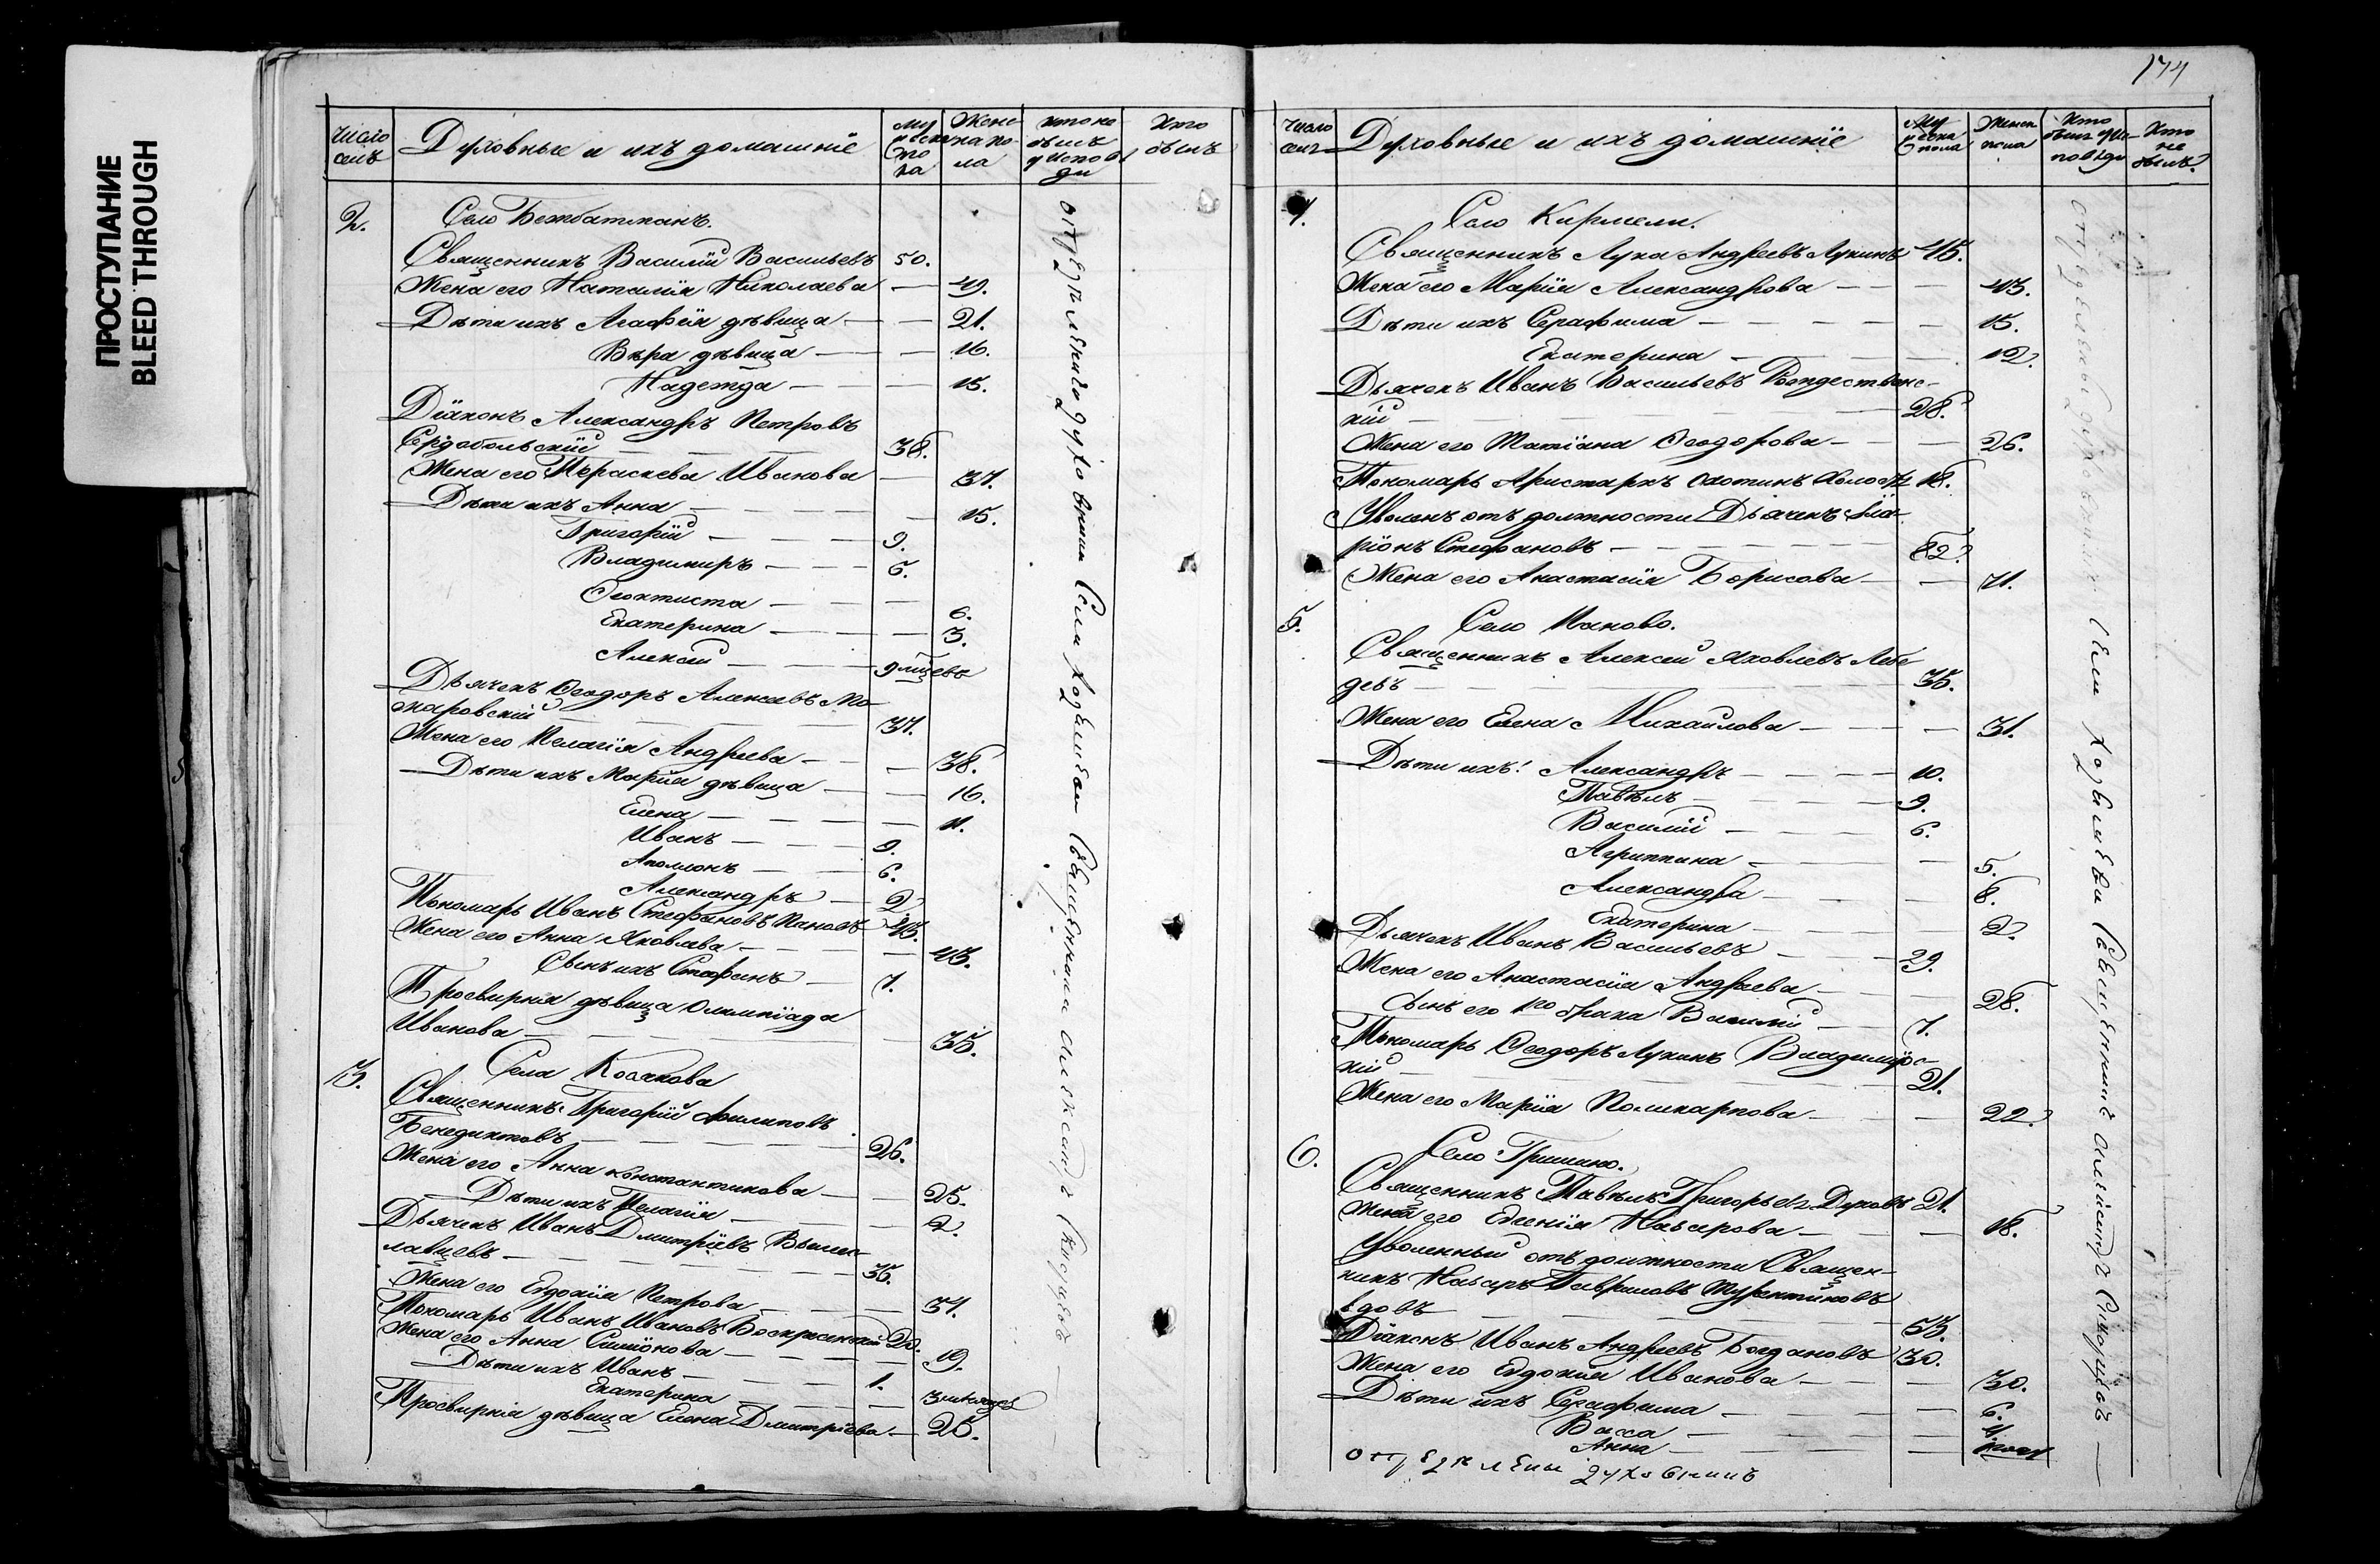 ПРОСТУПАНИЕ
BLEED THROUGH
Число селъ
Духовные и ихъ домашніе
Мужеска пола
Женска пола
Кто не былъ у исповѣди
Кто былъ
2. Село Бетбатманъ.
Священникъ Василій Васильевъ 50.
Жена его Наталія Николаева — 49.
Дѣти ихъ Агафія дѣвица — 21.
Вѣра дѣвица — 16.
Надежда — 15.
Діаконъ Александръ Петровъ
Сердобольскій — 38.
Жена его Параскева Иванова — 37.
Дѣти ихъ Анна — 15.
Григорій — 9.
Владимиръ — 5.
Феоктиста — 6.
Екатерина — 3.
Алексей —
Дьячекъ Феодоръ Алексевъ Ма-
каровскій — 37.
Жена его Пелагія Андреева — 38.
Дѣти ихъ Марія дѣвица — 16.
Елена — 11.
Иванъ — 9.
Аполлонъ — 6.
Александръ — 2
Пономарь Иванъ Стефановъ Пановъ 45.
Жена его Анна Яковлева — 43.
Сынъ ихъ Стефанъ — 7.
Просвирня дѣвица Олимпіада
Иванова — 35.
3. Села Косякова
Священникъ Григорій Филиповъ
Бенедиктовъ — 26.
Жена его Анна Константинова — 25.
Дѣти ихъ Пелагія — 2.
Дьячекъ Иванъ Дмитріевъ Вышес-
лавцевъ — 36.
Жена его Евдокія Петрова — 31.
Пономарь Иванъ Ивановъ Воскресенскій 20.
Жена его Анна Симіонова — 19.
Дѣти ихъ Иванъ — 1.
Екатерина —
Просвирня дѣвица Елена Дмитріева — 25.
отъ духовника Села Священника Александра
174
Число селъ
Духовные и ихъ домашніе
Мужеска пола
Женска пола
Кто былъ у исповѣди
Кто не былъ?
4. Село Кирмели.
Священникъ Лука Андреевъ Лукинъ 45.
Жена его Марія Александрова — 43.
Дѣти ихъ Серафима — 15.
Екатерина — 12.
Дьячекъ Иванъ Васильевъ Рождественс-
кій — 28.
Жена его Татіана Феодорова — 26.
Пономарь Аристархъ Охотинъ холостъ 18.
Уволенъ отъ должности Дьячекъ Ила-
ріонъ Стефановъ — 82.
Жена его Анастасія Борисова — 71.
5. Село Паново.
Священникъ Алексей Яковлевъ Лебе
девъ — 35.
Жена его Елена Михайлова — 31.
Дѣти ихъ: Александръ — 10.
Павелъ — 9.
Василій — 6.
Агриппина — 5.
Александра — 8.
Екатерина — 2.
Дьячекъ Иванъ Васильевъ — 29.
Жена его Анастасія Андреева — 28.
сынъ его 1го брака Василій — 7.
Пономарь Феодоръ Лукинъ Владимірс-
кій — 21.
Жена его Марія Поликарпова — 22.
6. Село Гришино.
Священникъ Павелъ Григорьевъ Духовъ 21.
Жена его Евгенія Назарова — 18.
Уволенный отъ должности Священ-
никъ Назаръ Гавриловъ
вдовъ — 53.
Діаконъ Иванъ Андреевъ Богдановъ 30.
Жена его Евдокія Иванова — 30.
Дѣти ихъ Серафима — 6.
Васса — 4.
Анна —
духовникъ
Села Священникъ